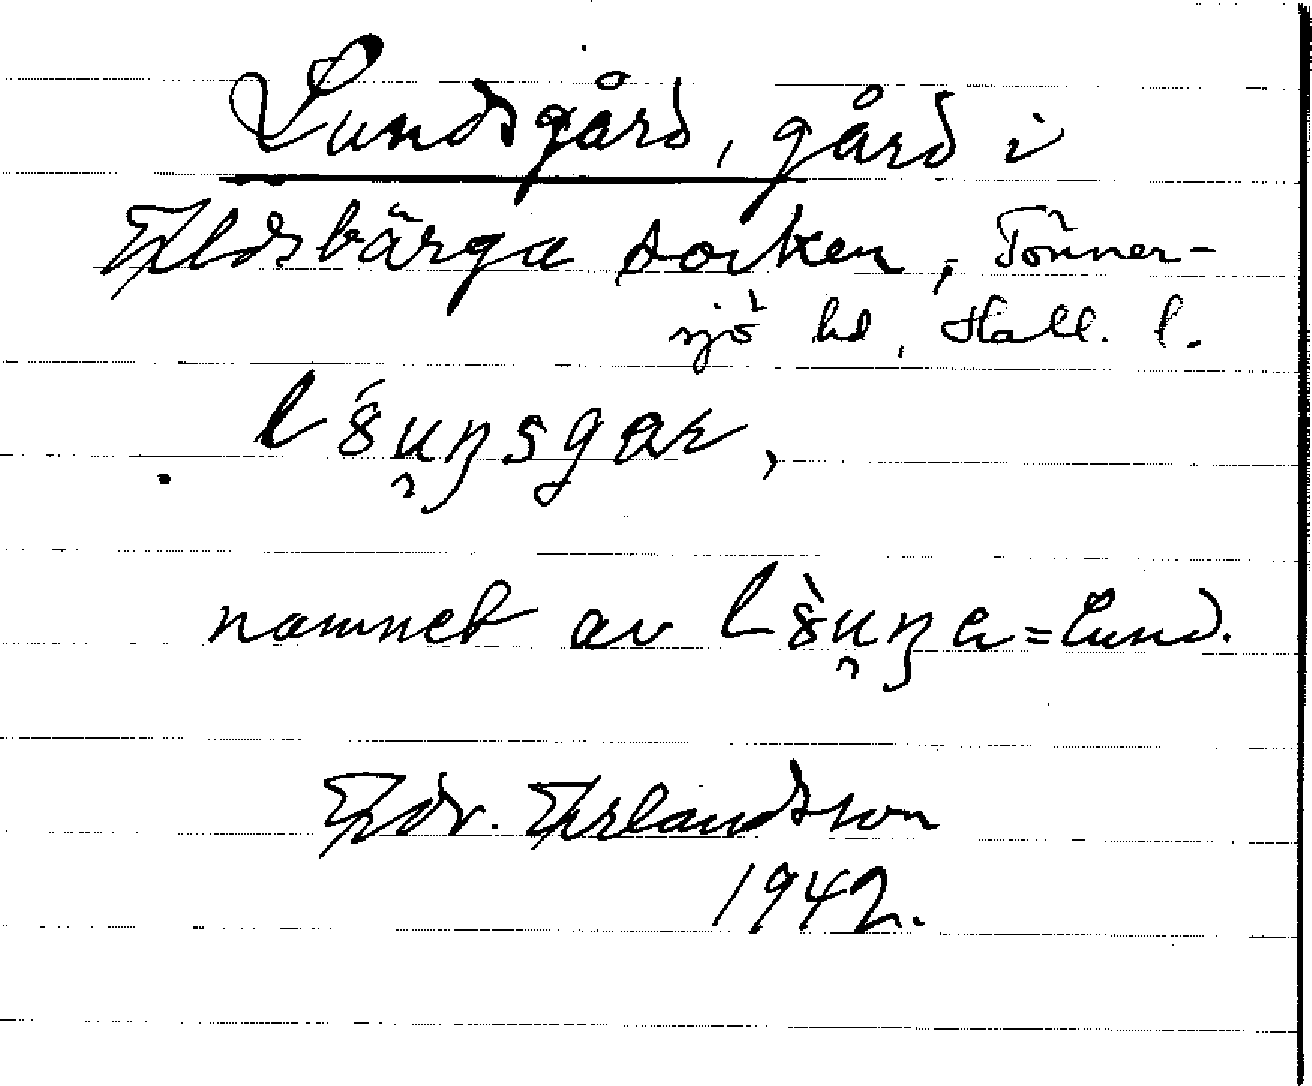 Lundsgård, gård i
Eldsbärga socken, Tönner-
sjö hd, Hall. l.
namnet av = Lund.
Edv. Erlandsson
1942.